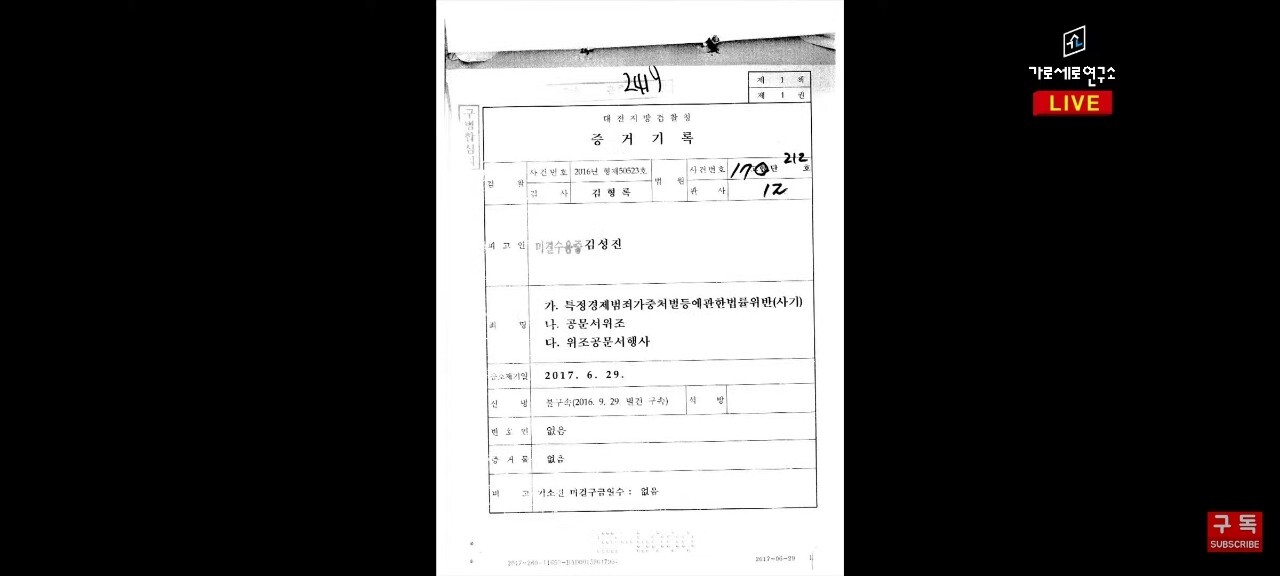 가로세로연구소
LIVE
제 1 책
제 1 권
대전지방검찰청
증 거 기 록
검 찰
사건번호 2016년 형제50523호
검 사 김형록
법 원
사건번호 212 호
판 사 12
피 고 인 미결수용중 김성진
죄 명
가. 특정경제범죄가중처벌등에관한법률위반(사기)
나. 공문서위조
다. 위조공문서행사
공소제기일 2017. 6. 29.
신 병 불구속(2016. 9. 29. 별건 구속) 석 방
변 호 인 없음
증 거 물 없음
비 고 기소전 미결구금일수 : 없음
2017-06-29 1
구독
SUBSCRIBE